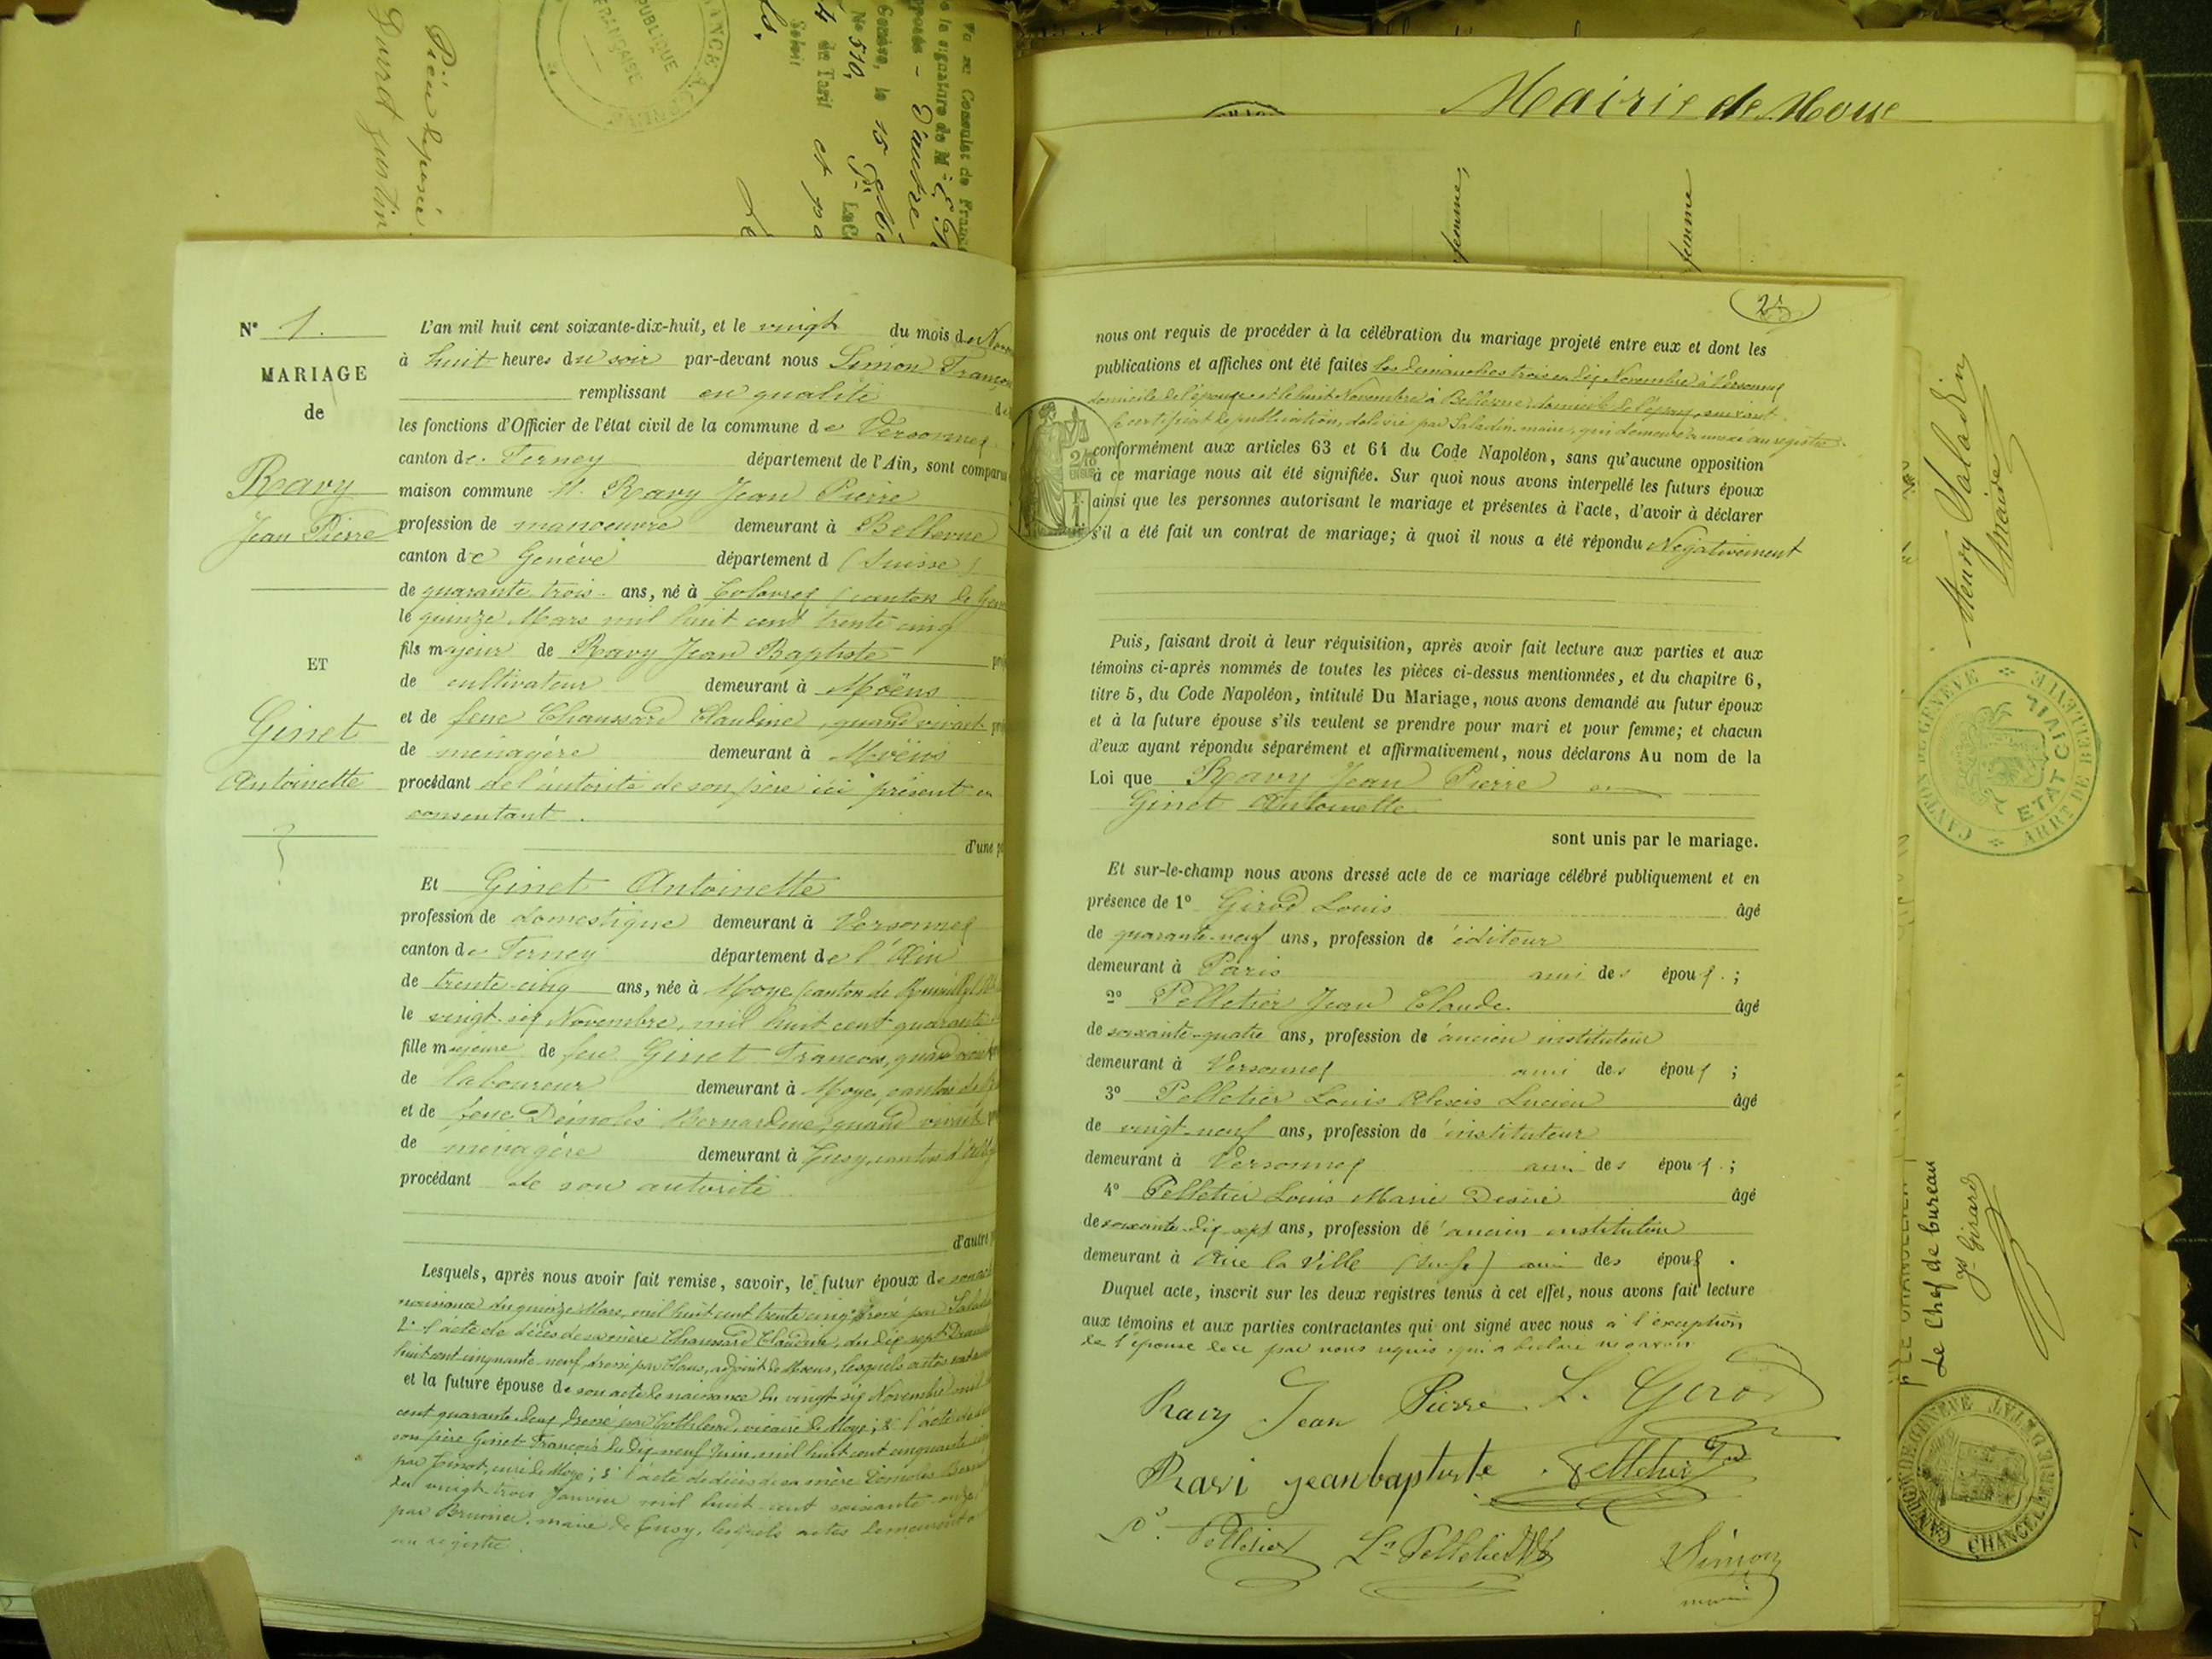 Mairie de
femme,
femme
Pièce déposée
Vu au Consulat de France
la signature de M
d'autre
Genève, le 15
N° 510,
de Tarif
Soleil
RÉPUBLIQUE
FRANÇAISE
N° 1.
MARIAGE
de
Ravy
Jean Pierre
ET
Ginet
Antoinette
L'an mil huit cent soixante-dix-huit, et le vingt du mois de
à huit heures du soir par-devant nous Simon François
remplissant en qualité
les fonctions d'Officier de l'état civil de la commune de Versonnex
canton de Ferney département de l'Ain, sont comparus
maison commune M. Ravy Jean Pierre
profession de manoeuvre demeurant à Bellevue
canton de Genève département d (Suisse)
de quarante trois ans, né à (canton de
le quinze Mars mil huit cent trente cinq
fils majeur de Ravy Jean Baptiste
de cultivateur demeurant à Moëns
et de feue Chaussard Claudine, quand vivait
de ménagère demeurant à Moëns
procédant de l'autorité de son père ici présent et
consentant.
d'une
Et Ginet Antoinette
profession de domestique demeurant à Versonnex
canton de Ferney département de l'Ain
de trente-cinq ans, née à Moye (canton de Rumilly
le vingt six Novembre, mil huit cent quarante
fille majeure de feu Ginet François, quand vivait
de laboureur demeurant à Moye, canton de
et de feue Démolis Bernardine, quand vivait
de ménagère demeurant à Cusy, canton d'
procédant de son autorité
d'autre
Lesquels, après nous avoir fait remise, savoir, le futur époux de son acte
naissance du quinze Mars, mil huit cent trente cinq dressé par
2° l'acte de décès de sa mère Chaussard Claudine, du dix sept
huit cent cinquante-neuf dressé par adjoint de Moëns, lesquels actes
et la future épouse de son acte de naissance du vingt six Novembre mil
cent quarante deux dressé par vicaire de Moye; 2° l'acte de
son père Ginet François du dix neuf Juin, mil huit cent cinquante
par curé de Moye; 3° l'acte de décès de sa mère Démolis
du vingt-trois Janvier mil huit cent soixante
par maire de Cusy, lesquels actes demeurent
au registre.
25
nous ont requis de procéder à la célébration du mariage projeté entre eux et dont les
publications et affiches ont été faites les dimanches trois et dix Novembre à Versonnex
domicile de l'épouse et le huit Novembre à Bellevue, domicile de l'époux, suivant
le certificat de publication, délivré par Saladin, maire, qui demeure annexé au registre.
conformément aux articles 63 et 64 du Code Napoléon, sans qu'aucune opposition
à ce mariage nous ait été signifiée. Sur quoi nous avons interpellé les futurs époux
ainsi que les personnes autorisant le mariage et présentes à l'acte, d'avoir à déclarer
s'il a été fait un contrat de mariage; à quoi il nous a été répondu Négativement
Puis, faisant droit à leur réquisition, après avoir fait lecture aux parties et aux
témoins ci-après nommés de toutes les pièces ci-dessus mentionnées, et du chapitre 6,
titre 5, du Code Napoléon, intitulé Du Mariage, nous avons demandé au futur époux
et à la future épouse s'ils veulent se prendre pour mari et pour femme; et chacun
d'eux ayant répondu séparément et affirmativement, nous déclarons Au nom de la
Loi que Ravy Jean Pierre et
Ginet Antoinette
sont unis par le mariage.
Et sur-le-champ nous avons dressé acte de ce mariage célébré publiquement et en
présence de 1° Girod Louis âgé
de quarante-neuf ans, profession de éditeur
demeurant à Paris ami des époux ;
2° Pelletier Jean Claude âgé
de soixante-quatre ans, profession de ancien instituteur
demeurant à Versonnex ami des époux ;
3° Pelletier Louis Alexis Lucien âgé
de vingt-neuf ans, profession de instituteur
demeurant à Versonnex ami des époux ;
4° Pelletier Louis Marie Désiré âgé
de soixante dix sept ans, profession de ancien instituteur
demeurant à Aire la Ville (Suisse) ami des époux .
Duquel acte, inscrit sur les deux registres tenus à cet effet, nous avons fait lecture
aux témoins et aux parties contractantes qui ont signé avec nous à l'exception
de l'épouse de ce par nous requis, qui a déclaré ne savoir
Ravy Jean Pierre L. Girod
Ravi jean baptiste Pelletier
Pelletier Ls Pelletier Simon
maire
Henry Saladin
Maire
CANTON DE GENÈVE
ETAT CIVIL
ARRT DE BELLEVUE
LE CHANCELIER
Le Chef de bureau
Girard
CANTON DE GENÈVE
CHANCELLERIE D'ETAT